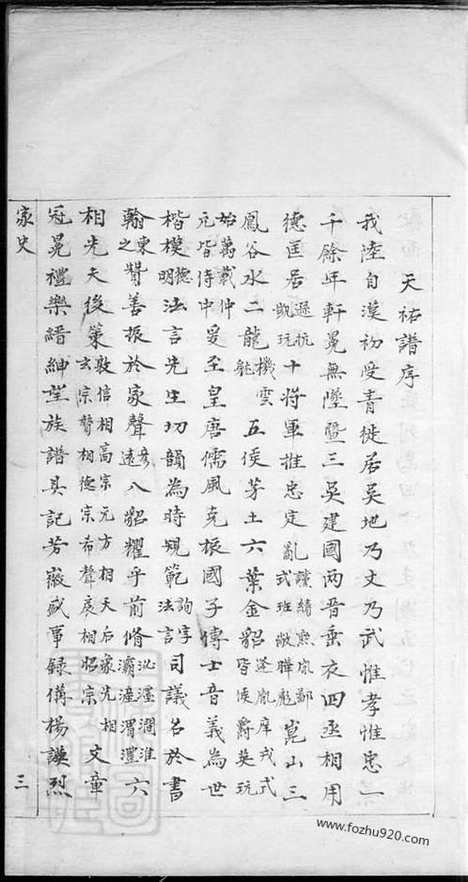 天祐譜序
我陸自漢初受青徙居吳地乃文乃武惟孝惟忠一
千餘年軒冕無墜暨三吳建國兩晉垂衣四丞相用
德匡君遜抗凱玩十將軍推忠定亂式班崑山三
鳳谷水二龍機雲五侯茅土六葉金貂皆侯爵英玩
始萬載仲元皆侍中爰至皇唐儒風克振國子博士音義為世
楷模德明法言先生切韻為時規範詢字法言司議名於書
翰柬之贊善振於家聲彥遠八貂耀乎前脩六
相光天後策敦信相高宗元方相天后象先相玄宗贄相德宗希聲扆相昭宗文章
冠冕禮樂縉紳望族譜具記芳徽盛事錄備揚謨烈
家史
三
www.fozhu920.com